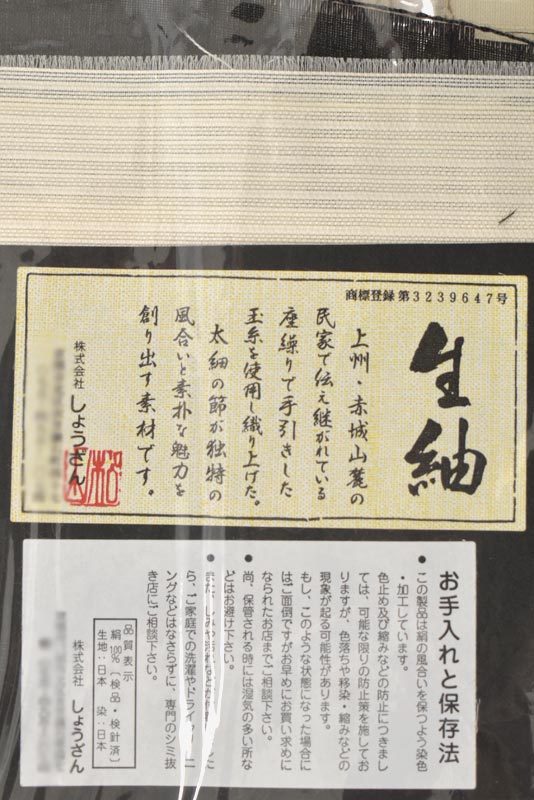 商標登録 第3239647号
生紬
上州・赤城山麓の
民家で伝え継がれている
座繰りで手引きした
玉糸を使用し織り上げた。
太細の節が独特の
風合いと素朴な魅力を
創り出す素材です。
株式会社 しょうざん
お手入れと保存法
● この製品は絹の風合いを保つよう染色
・加工しています。
色止め及び縮みなどの防止につきまし
ては、可能な限りの防止策を施してお
りますが、色落ちや移染・縮みなどの
現象が起る可能性があります。
もし、このような状態になった場合に
はご面倒ですがお早めにお買い求めに
なられたお店までご相談下さい。
● 尚、保管される時には湿気の多い所な
どはお避け下さい。
● また、しみや汚れなどが
した
ら、ご家庭での洗濯やドライクリーニ
ングなどはなさらずに、専門のシミ抜
き店にご相談下さい。
品質表示
絹100% 〔検品・検針済〕
生地:日本 染:日本
株式会社 しょうざん